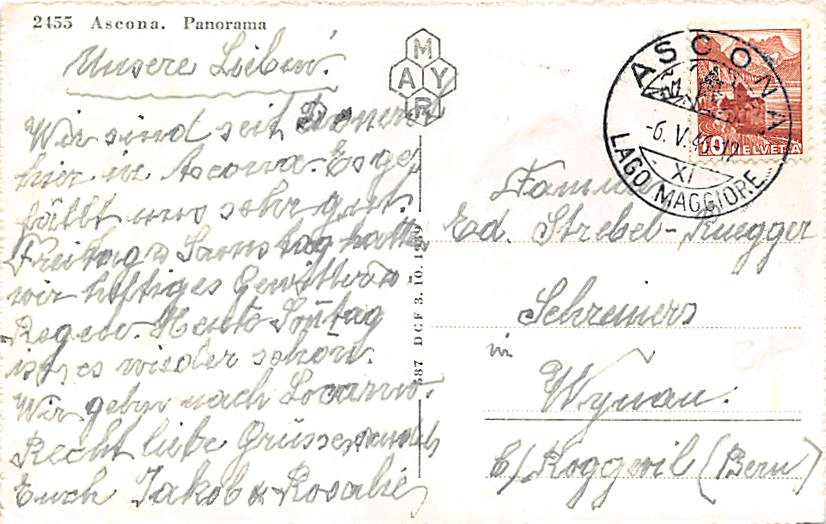 2455 Ascona. Panorama
Unsere Lieben!
Wir sind seit Donners
hier in Ascona. Es ge,
fällt uns sehr gut.
Freitag & Samstag hatten
wir heftiges Gewitter &
Regen. Heute Sontag
ist es wieder schön.
Wir gehen nach Locarno.
Recht liebe Grüsse sendet
Euch Jakob & Rosalie,
MAYR
387 DCF 3. 10. 1939
ASCONA
-6. V. 12
XI
LAGO MAGGIORE
10 HELVETIA
Familie
Ed. Strebel-Ruegger
Schreiners
in
Wynau.
b/Roggwil (Bern)